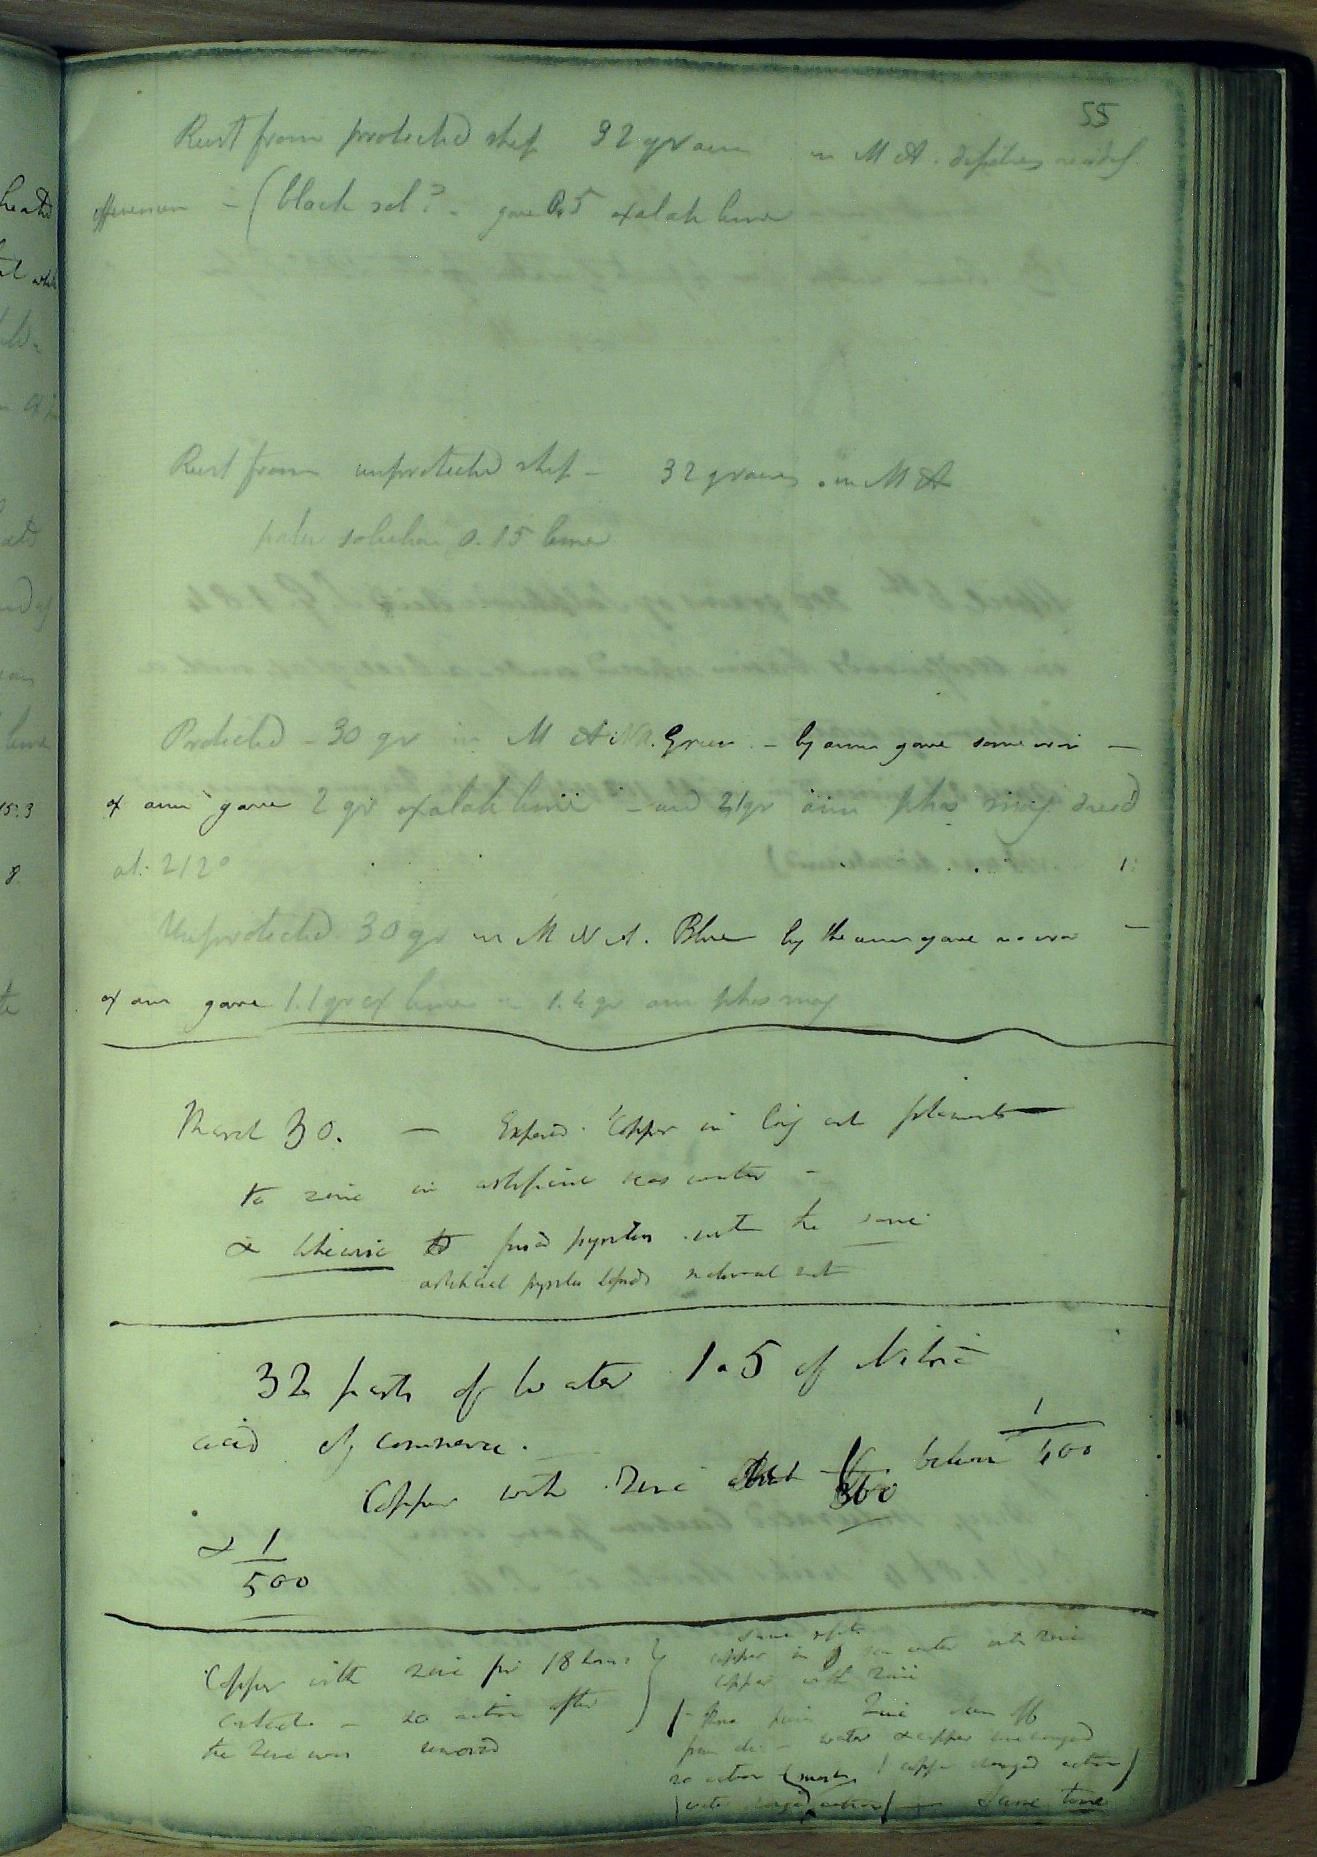 55
Rust from protected ship 32 grain in M A.
effervesces - (black sol? - gave 0.5 oxalate lime
Rust from unprotected ship - 32 grains. in M A
paler solution 0.15 lime
Protected - 30 gr in M A NA. Green - by amm gave some iron -
ox amm gave 2 gr oxalate lime - and 21gr amm phos mag dried
at. 212°
Unprotected 30 gr in M N A. Blue by the amm gave no iron -
ox amm gave 1.1 gr ox lime 1.4 gr am phos mag
March 30. - Exposed Copper in
to zinc in artificial sea water -
& likewise fused pyrites with the same
artificial pyrites natural
32 parts of Water 1.5 of Nitric
acid of commerce.
Copper with Zinc 1/360 below 1/400
& 1/500
Copper with zinc for 18 hours
contact - no action after
the Zinc was removed
copper in sea water with zinc
copper with zinc
Zinc
water & copper unchanged
no action (most / copper changed action)
(water changed action) - Same time